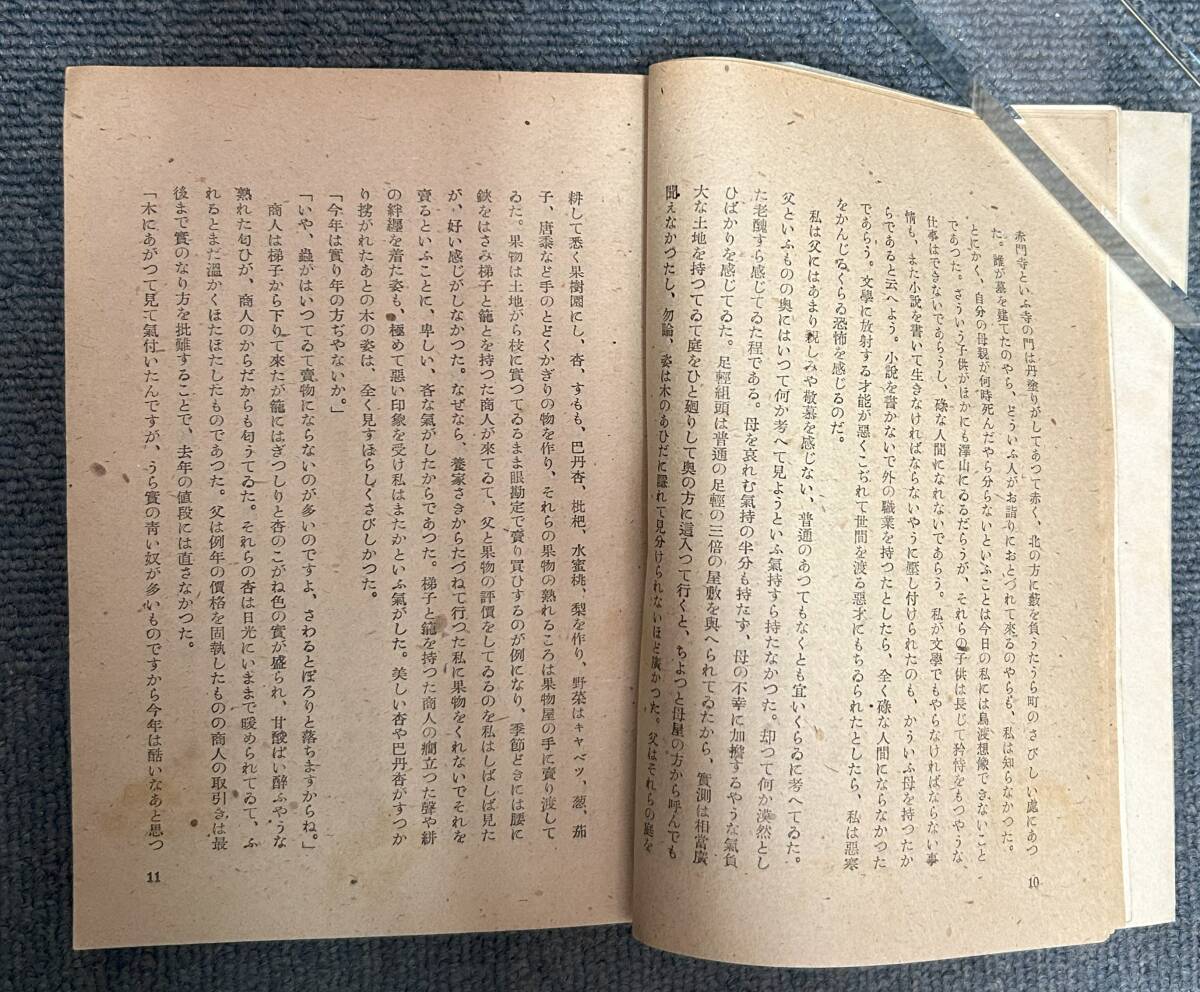 赤門寺といふ寺の門は丹塗りがしてあつて赤く、北の方に藪を負うたうら町のさびしい處にあつ
た。誰が墓を建てたのやら、どういふ人がお詣りにおとづれて來るのやらも、私は知らなかつた。
とにかく、自分の母親が何時死んだやら分らないといふことは今日の私には鳥渡想像できないこと
であつた。さういう子供がほかにも澤山にゐるだらうが、それらの子供は長じて矜恃をもつやうな
仕事はできないであらうし、碌な人間になれないであらう。私が文學でもやらなければならない事
情も、また小説を書いて生きなければならないやうに壓し付けられたのも、かういふ母を持つたか
らであると云へよう。小説を書かないで外の職業を持つたとしたら、全く碌な人間にならなかつた
であらう。文學に放射する才能が惡くこぢれて世間を渡る惡才にもちゐられたとしたら、私は惡寒
をかんじるくらゐ恐怖を感じるのだ。
私は父にはあまり親しみや敬慕を感じない、普通のあつてもなくとも宜いくらゐに考へてゐた。
父といふものの奥にはいつて何か考へて見ようといふ氣持すら持たなかつた。却つて何か漠然とし
た老醜すら感じてゐた程である。母を哀れむ氣持の半分も持たず、母の不幸に加擔するやうな氣負
ひばかりを感じてゐた。足輕組頭は普通の足輕の三倍の屋敷を與へられてゐたから、實測は相當廣
大な土地を持つてゐて庭をひと廻りして奥の方に這入つて行くと、ちよつと母屋の方から呼んでも
聞えなかつたし、勿論、姿は木のあひだに隱れて見分けられないほど廣かつた。父はそれらの庭を
10
耕して悉く果樹園にし、杏、すもも、巴丹杏、枇杷、水蜜桃、梨を作り、野菜はキャベツ、葱、茄
子、唐黍など手のとどくかぎりの物を作り、それらの果物の熟れるころは果物屋の手に賣り渡して
ゐた。果物は土地がら枝に實つてゐるまま眼勘定で賣り買ひするのが例になり、季節どきには腰に
鋏をはさみ梯子と籠とを持つた商人が來てゐて、父と果物の評價をしてゐるのを私はしばしば見た
が、好い感じがしなかつた。なぜなら、養家さきからたづねて行つた私に果物をくれないでそれを
賣るといふことに、卑しい、吝な氣がしたからであつた。梯子と籠を持つた商人の癇立つた聲や絣
の絆纒を着た姿も、極めて惡い印象を受け私はまたかといふ氣がした。美しい杏や巴丹杏がすつか
り捥がれたあとの木の姿は、全く見すほらしくさびしかつた。
「今年は實り年の方ぢやないか。」
「いや、蟲がはいつてゐて賣物にならないのが多いのですよ、さわるとぽろりと落ちますからね。」
商人は梯子から下りて來たが籠にはぎつしりと杏のこがね色の實が盛られ、甘酸ぱい醉ふやうな
熟れた匂ひが、商人のからだからも匂うてゐた。それらの杏は日光にいままで暖められてゐて、ふ
れるとまだ溫かくほたほたしたものであつた。父は例年の價格を固執したものの商人の取引きは最
後まで實のなり方を批難することで、去年の値段には直さなかつた。
「木にあがつて見て氣付いたんですが、うら實の靑い奴が多いものですから今年は酷いなあと思つ
11